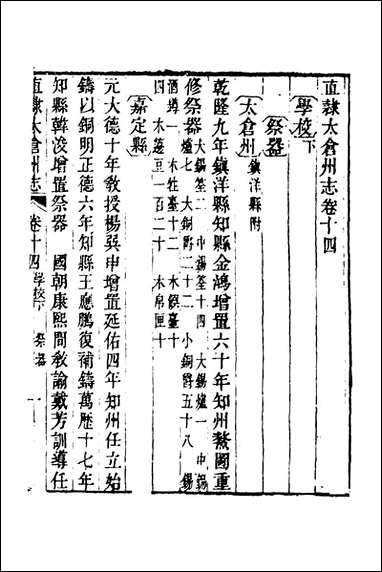 直隷太倉州志卷十四
學校下
祭器
太倉州 鎮洋縣附
乾隆九年鎮洋縣知縣金鴻增置六十年知州鰲圖重
修祭器 大錫簠二 中錫簠十四 大錫爐一 中錫
爐七 大銅爵二十二 小銅爵五十八 錫
酒罇一 木牲臺十二 木饌臺十
四 木籩豆一百二十 木帛匣十
嘉定縣
元大德十年教授楊巽申增置延佑四年知州任立始
鑄以銅明正德六年知縣王應鵬復補鑄萬歷十七年
知縣韓浚增置祭器 國朝康熙間教諭戴芳訓導任
直隷太倉州志 卷十四 學校下 祭器 一